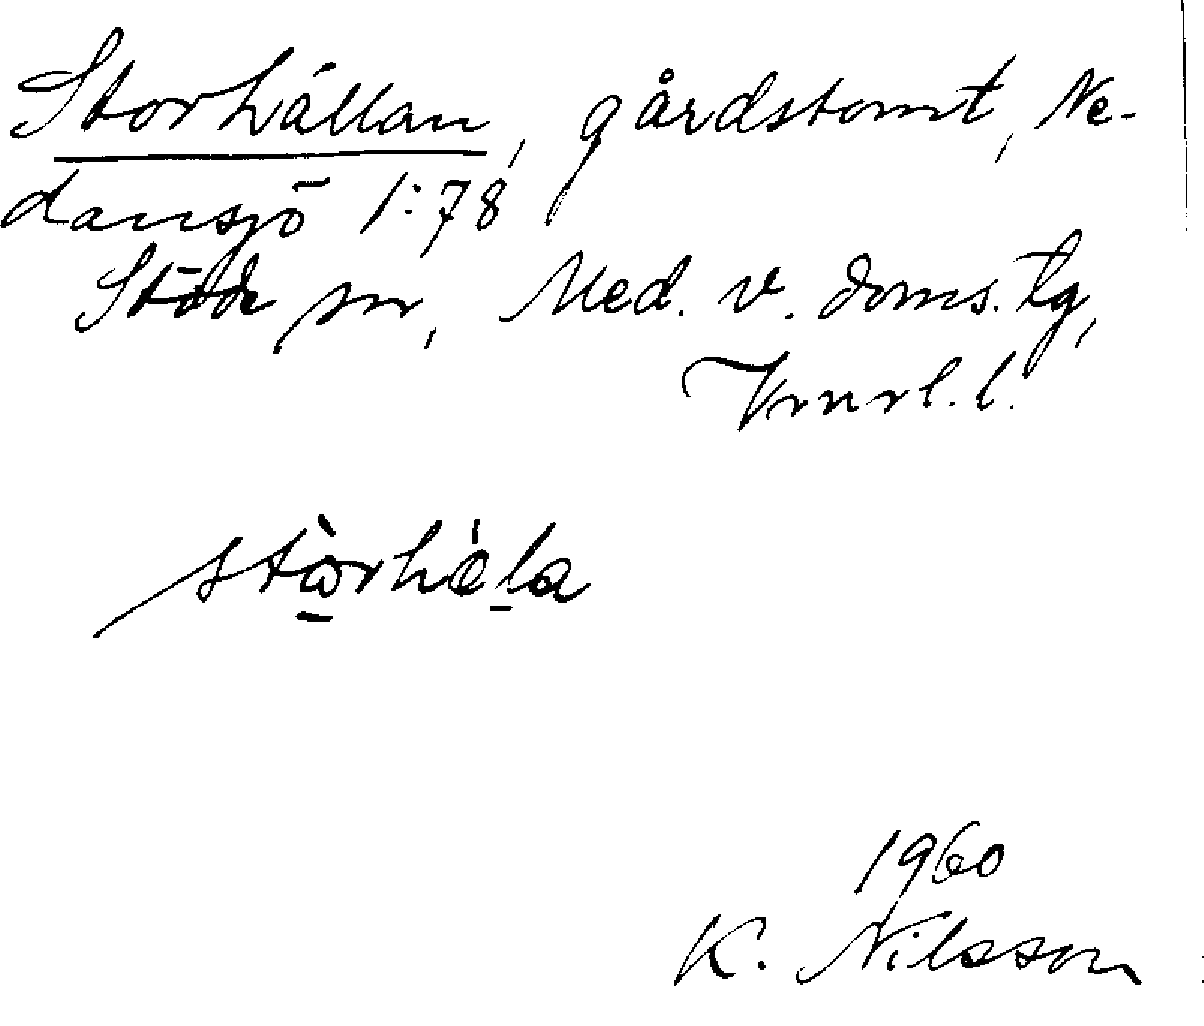 Storhällan, gårdstomt, Ne-
dansjö 1:78
Stöde sn, Med. v. doms. tg,
Vnrl. l.
1960
K. Nilsson